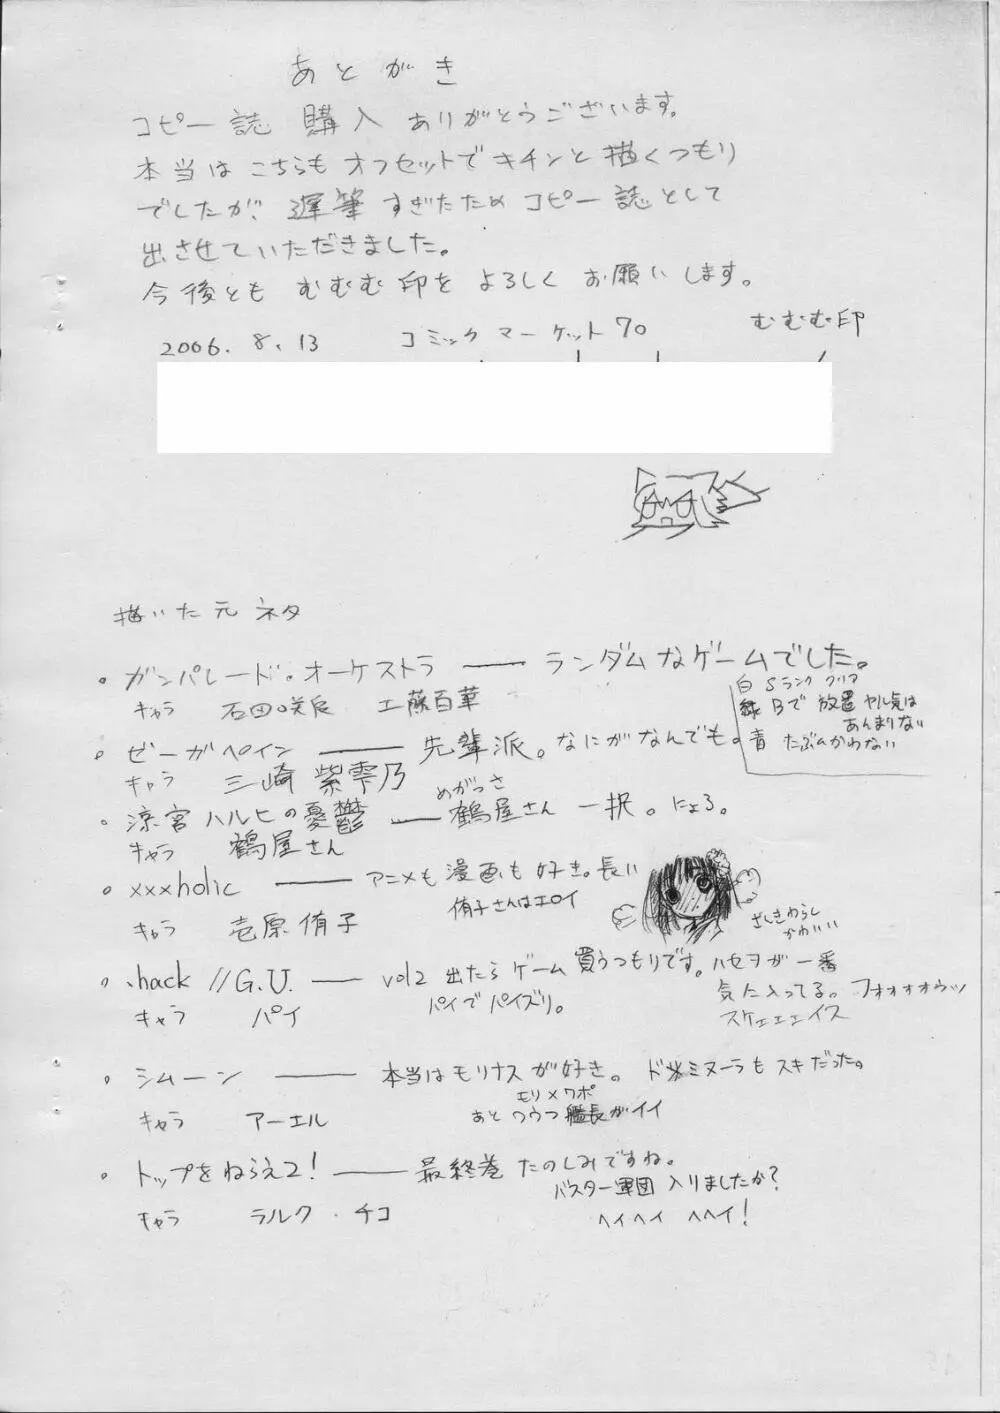 あとがき
コピー誌 購入 ありがとうございます。
本当は こちらも オフセットで キチンと 描くつもり
でしたが、遅筆 すぎたため コピー誌として
出させていただきました。
今後とも むむむ印を よろしく お願いします。
2006. 8. 13 コミックマーケット70 むむむ印
描いた元ネタ
・ガンパレード・オーケストラ ―― ランダムなゲームでした。
白 Sランク クリア
キャラ 石田咲良 工藤百華
緑 Bで 放置 ヤル気は
あんまりない
青 たぶんかわない
・ゼーガペイン ―― 先輩派。なにがなんでも。
キャラ 三崎 紫雫乃
めがっさ
・涼宮ハルヒの憂鬱 ―― 鶴屋さん 一択。にょろ。
キャラ 鶴屋さん
・xxxholic ―― アニメも 漫画も 好き。長い
侑子さんはエロイ
キャラ 壱原侑子
ざしきわらし
かわいい
・.hack //G.U. ―― vol2 出たら ゲーム 買うつもりです。ハセヲが 一番
気に入ってる。フォォォォウッ
パイで パイズリ。
スケェェェイス
キャラ パイ
・シムーン ―― 本当は モリナス が好き。 ドミヌーラも スキだった。
モリ×ワポ
あと ワウフ 艦長がイイ
キャラ アーエル
・トップをねらえ2! ―― 最終巻 たのしみですね。
バスター軍団 入りましたか?
キャラ ラルク・チコ
ヘイヘイ ヘヘイ!